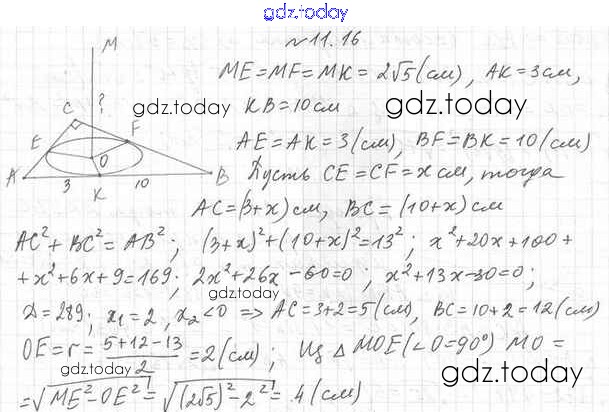 gdz.today
№11.16
M
ME=MF=MK=2√5(см), AK=3см,
C ?
gdz.today gdz.today
KB=10см
E F
AE=AK=3(см), BF=BK=10(см)
O
A 3 K 10 B
Пусть CE=CF=xсм, тогда
gdz.today gdz.today
AC=(3+x)см, BC=(10+x)см
AC²+BC²=AB²; (3+x)²+(10+x)²=13²; x²+20x+100+
+x²+6x+9=169; 2x²+26x-60=0; x²+13x-30=0;
gdz.today
D=289; x₁=2, x₂<0 => AC=3+2=5(см), BC=10+2=12(см)
OE=r=(5+12-13)/2=2(см); Из △MOE(∠O=90°) MO=
gdz.today
=√(ME²-OE²)=√((2√5)²-2²)=4(см)
gdz.today